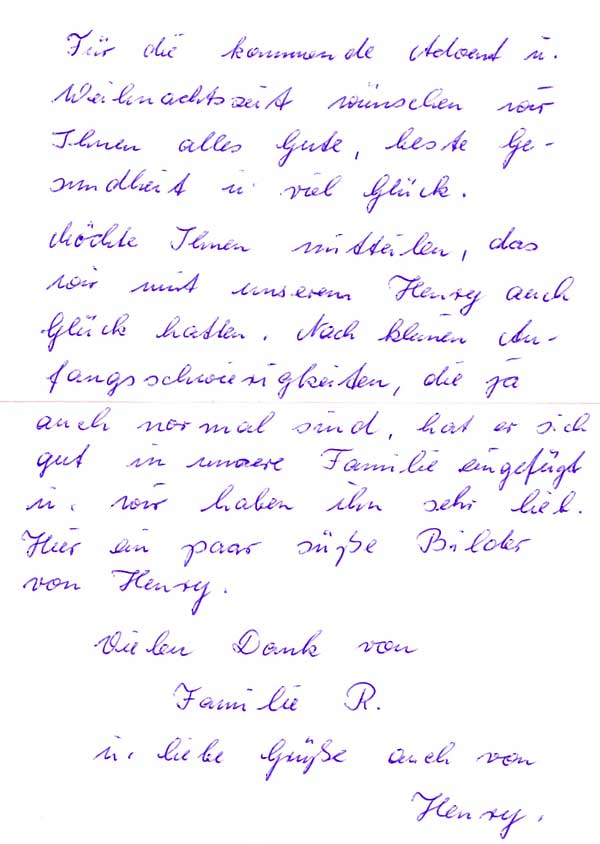 Für die kommende Advent u.
Weihnachtszeit wünschen wir
Ihnen alles Gute, beste Ge-
sundheit u. viel Glück.
Möchte Ihnen mitteilen, das
wir mit unserem Henry auch
Glück hatten. Nach kleinen An-
fangsschwierigkeiten, die ja
auch normal sind, hat er sich
gut in unsere Familie eingefügt
u. wir haben ihn sehr lieb.
Hier ein paar süße Bilder
von Henry.
Vielen Dank von
Familie R.
u. liebe Grüße auch von
Henry.